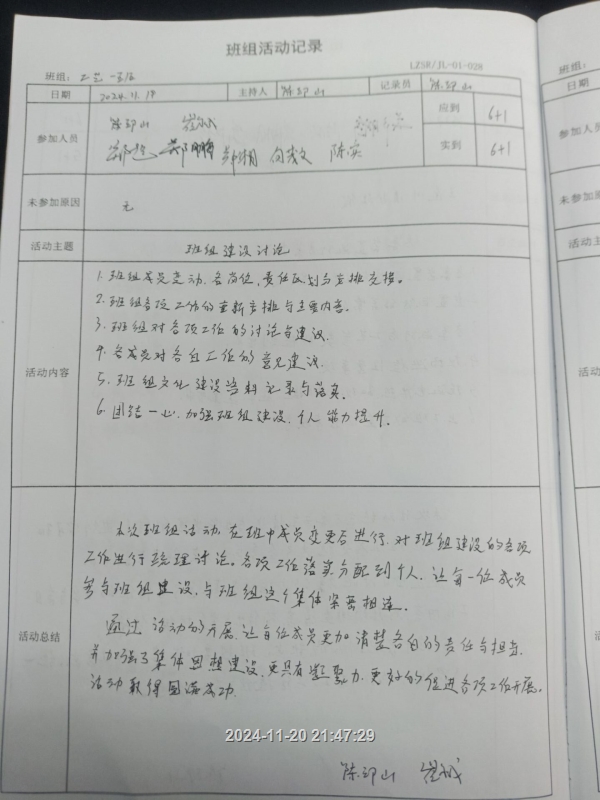 班组活动记录
LZSR/JL-01-028
班组: 工艺一班
日期 2024.11.19 主持人 陈卯山 记录员 陈卯山
参加人员 陈卯山 崔斌 应到 6+1
郑湘 向茂文 陈实 实到 6+1
未参加原因 无
活动主题 班组建设讨论
活动内容
1. 班组成员变动、各岗位,责任区划与安排交接。
2. 班组各项工作的重新安排与主要内容。
3. 班组对各项工作的讨论与建议.
4. 各成员对各自工作的意见建议.
5. 班组文化建设资料记录与落实.
6. 团结一心.加强班组建设.个人能力提升.
活动总结
本次班组活动,在班中成员变更后进行,对班组建设的各项
工作进行梳理讨论。各项工作落实分配到个人,让每一位成员
参与班组建设,与班组这个集体紧密相连。
通过活动的开展,让每位成员更加清楚各自的责任与担当,
并加强了集体思想建设,更具有凝聚力.更好的促进各项工作开展。
活动取得圆满成功.
2024-11-20 21:47:29
陈卯山 崔斌
班组:
日期
参加人员
未参加原因